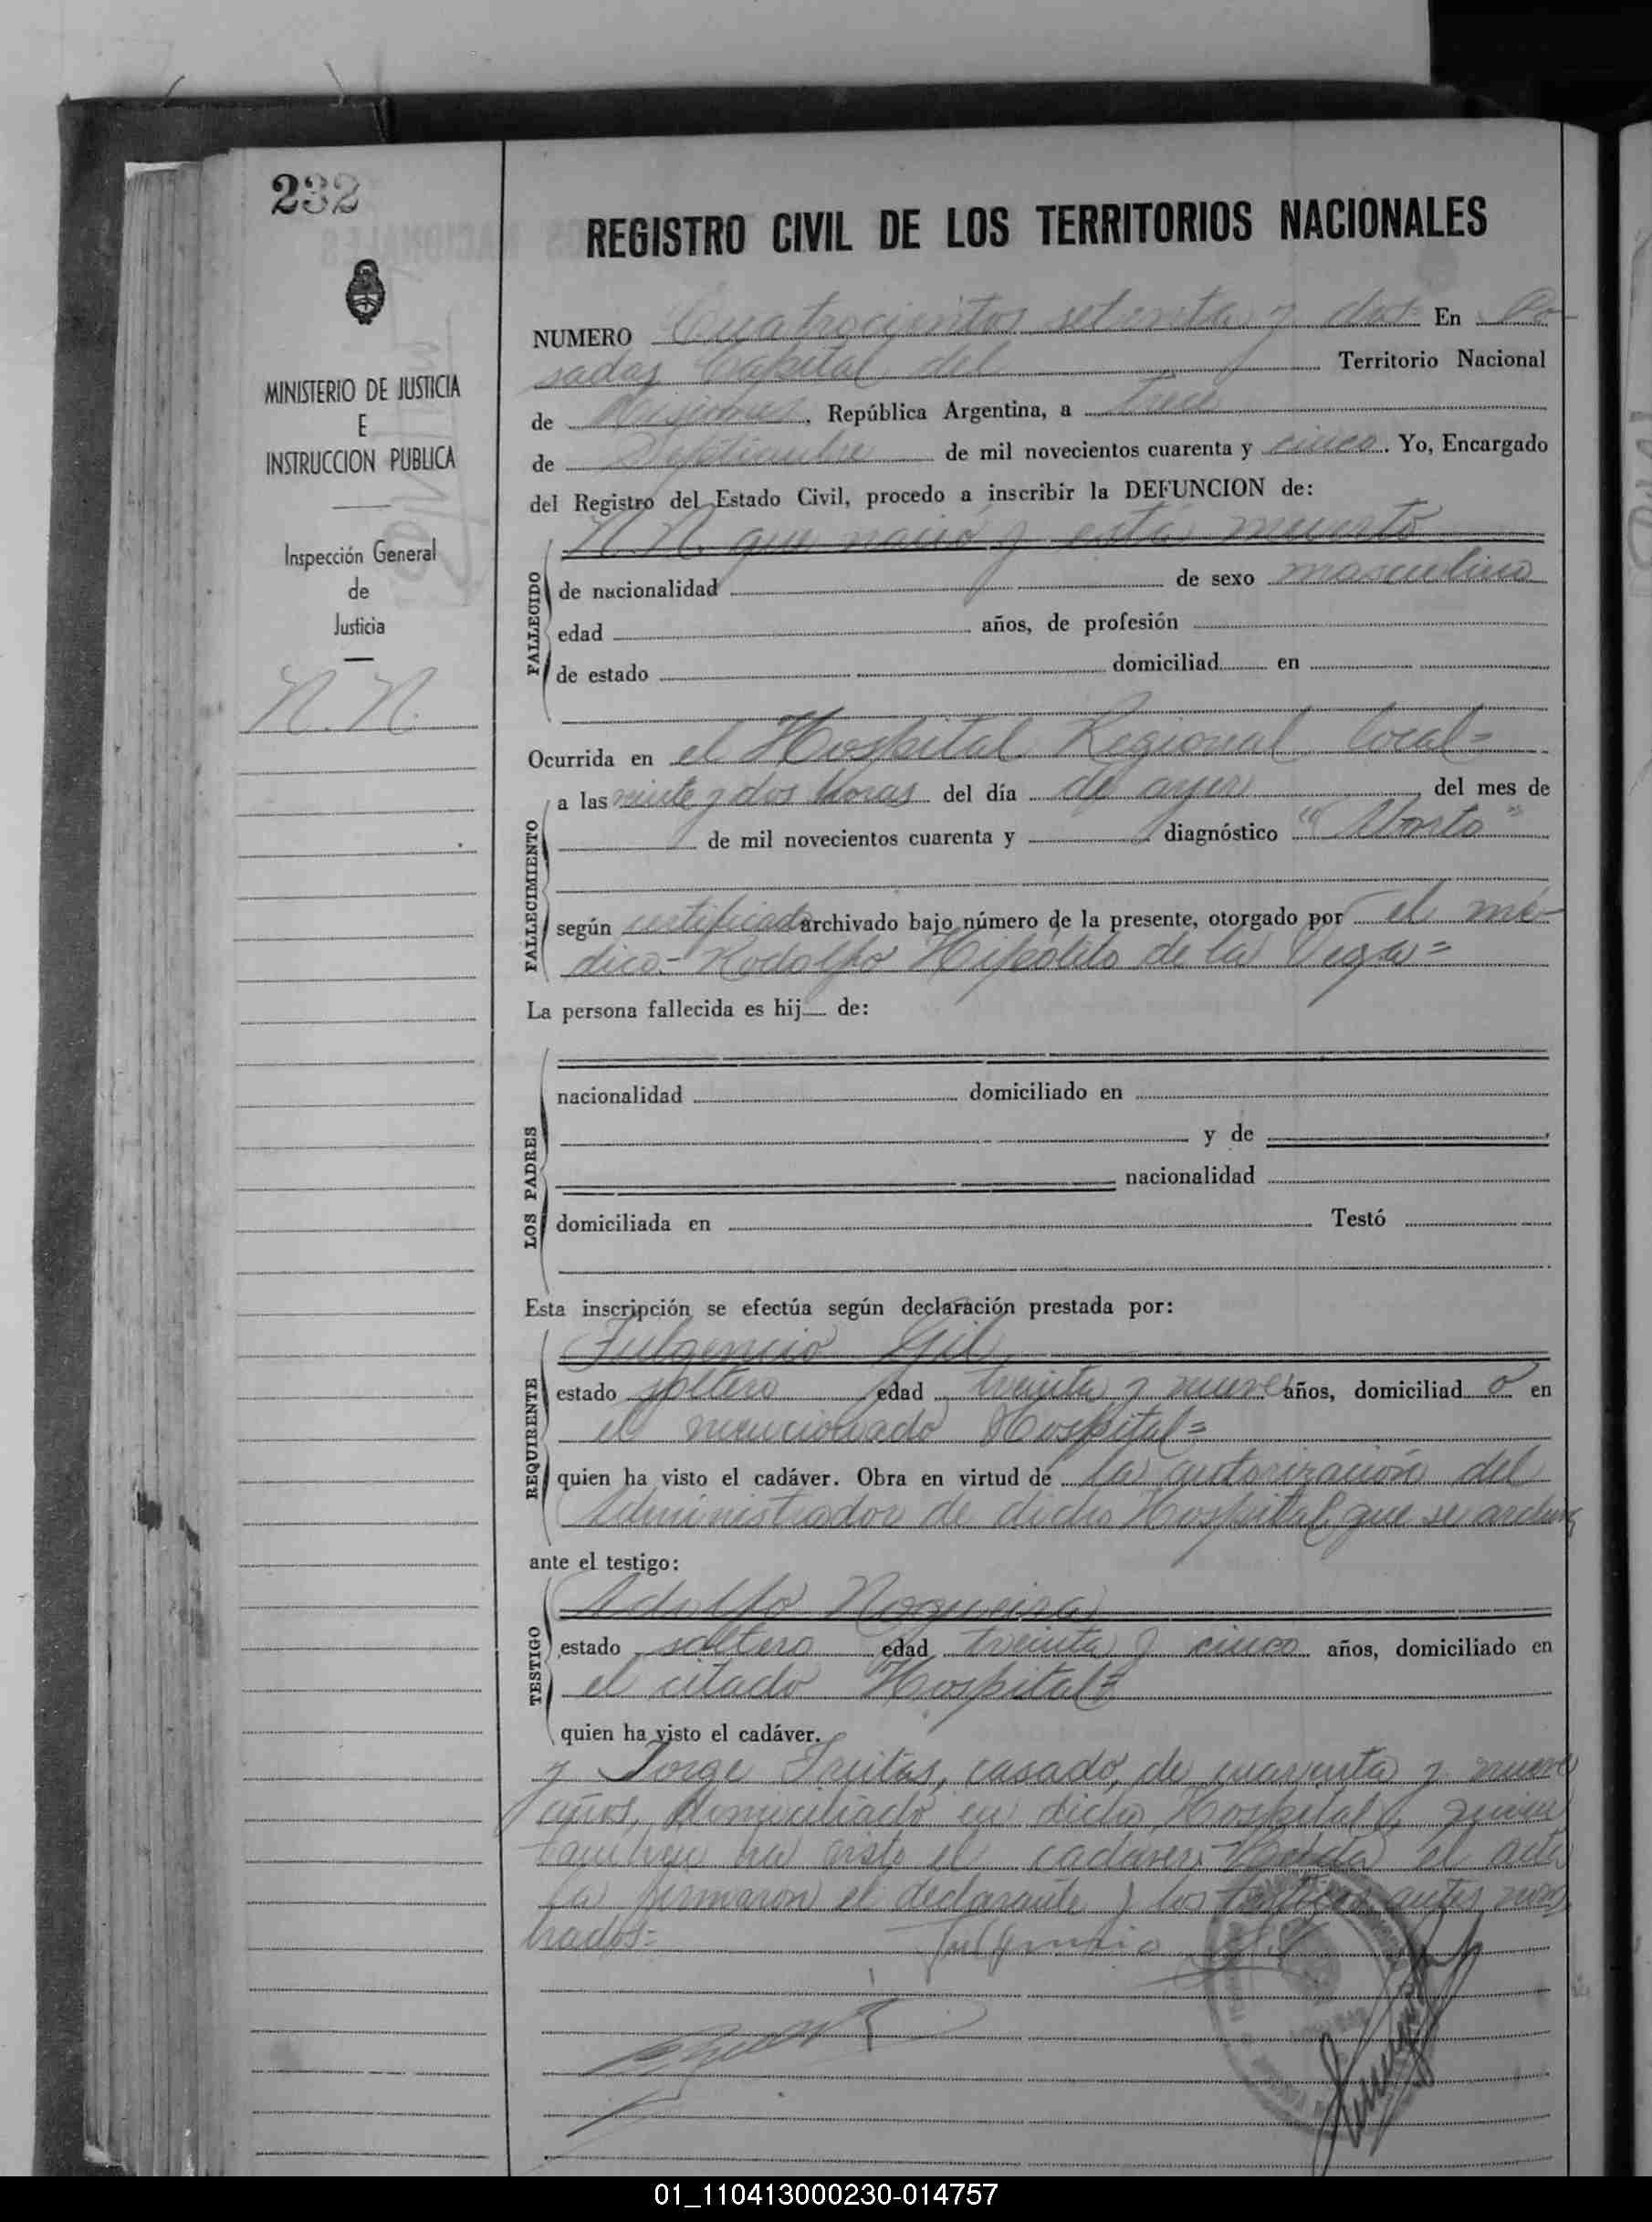 232
REGISTRO CIVIL DE LOS TERRITORIOS NACIONALES
MINISTERIO DE JUSTICIA
E
INSTRUCCION PUBLICA
Inspección General
de
Justicia
N. N.
NUMERO Cuatrocientos setenta y dos En Po-
sadas Capital del Territorio Nacional
de Misiones, República Argentina, a trece
de Septiembre de mil novecientos cuarenta y cinco. Yo, Encargado
del Registro del Estado Civil, procedo a inscribir la DEFUNCION de:
FALLECIDO
N.N. que nació y está muerto
de nacionalidad de sexo masculino
edad años, de profesión
de estado domiciliad en
Ocurrida en el Hospital Regional local=
FALLECIMIENTO
a las veinte y dos horas del día de ayer del mes de
de mil novecientos cuarenta y diagnóstico
según certificado archivado bajo número de la presente, otorgado por el mé-
dico- Rodolfo Hipólito de la Vega=
La persona fallecida es hij de:
LOS PADRES
nacionalidad domiciliado en
y de
nacionalidad
domiciliada en Testó
Esta inscripción se efectúa según declaración prestada por:
REQUIRENTE
Fulgencio Gil
estado soltero edad treinta y nueve años, domiciliad o en
el mencionado Hospital=
quien ha visto el cadáver. Obra en virtud de la autorización del
Administrador de dicho Hospital, que se
ante el testigo:
TESTIGO
Adolfo Nogueira
estado soltero edad treinta y cinco años, domiciliado en
el citado Hospital=
quien ha visto el cadáver.
y Jorge Freitas, casado, de cuarenta y nueve
años, domiciliado en dicho Hospital, quien
tambien ha visto el cadáver. Leída el acta
la firmaron el declarante y los testigos antes nom-
brados=
Fulgencio Gil
01_110413000230-014757